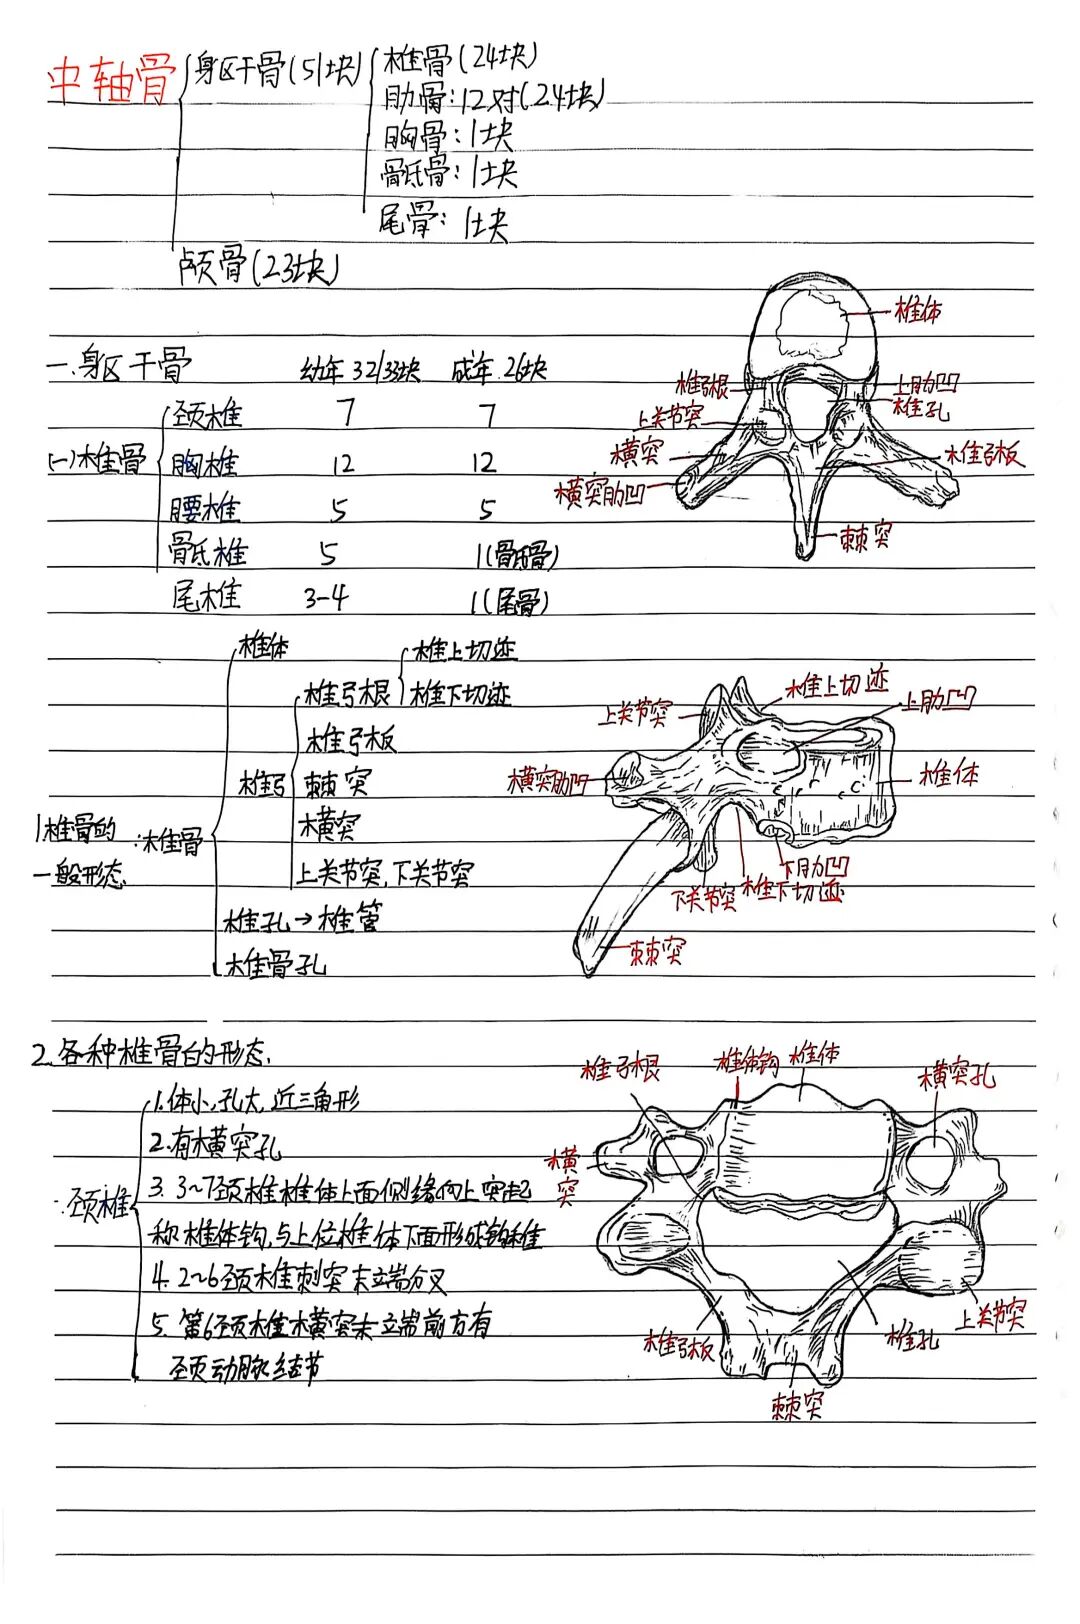 中轴骨
躯干骨(51块)
椎骨(24块)
肋骨:12对(24块)
胸骨:1块
骶骨:1块
尾骨:1块
颅骨(23块)
一.躯干骨 幼年 32/33块 成年 26块
(一)椎骨
颈椎 7 7
胸椎 12 12
腰椎 5 5
骶椎 5 1(骶骨)
尾椎 3-4 1(尾骨)
椎体
椎弓根
上关节突
横突
横突肋凹
上肋凹
椎孔
椎弓板
棘突
1.椎骨的
一般形态
:椎骨
椎体
椎弓
椎弓根
椎上切迹
椎下切迹
椎弓板
棘突
横突
上关节突,下关节突
椎孔→椎管
椎骨孔
上关节突
椎上切迹
上肋凹
横突肋凹
椎体
下肋凹
下关节突
椎下切迹
棘突
2.各种椎骨的形态.
:颈椎
1.体小,孔大,近三角形
2.有横突孔
3. 3~7颈椎椎体上面侧缘向上突起
称椎体钩,与上位椎体下面形成钩椎
4. 2~6颈椎刺突末端分叉
5. 第6颈椎横突末端前方有
颈动脉结节
椎弓根
椎体钩
椎体
横突孔
横突
椎弓板
椎孔
上关节突
棘突